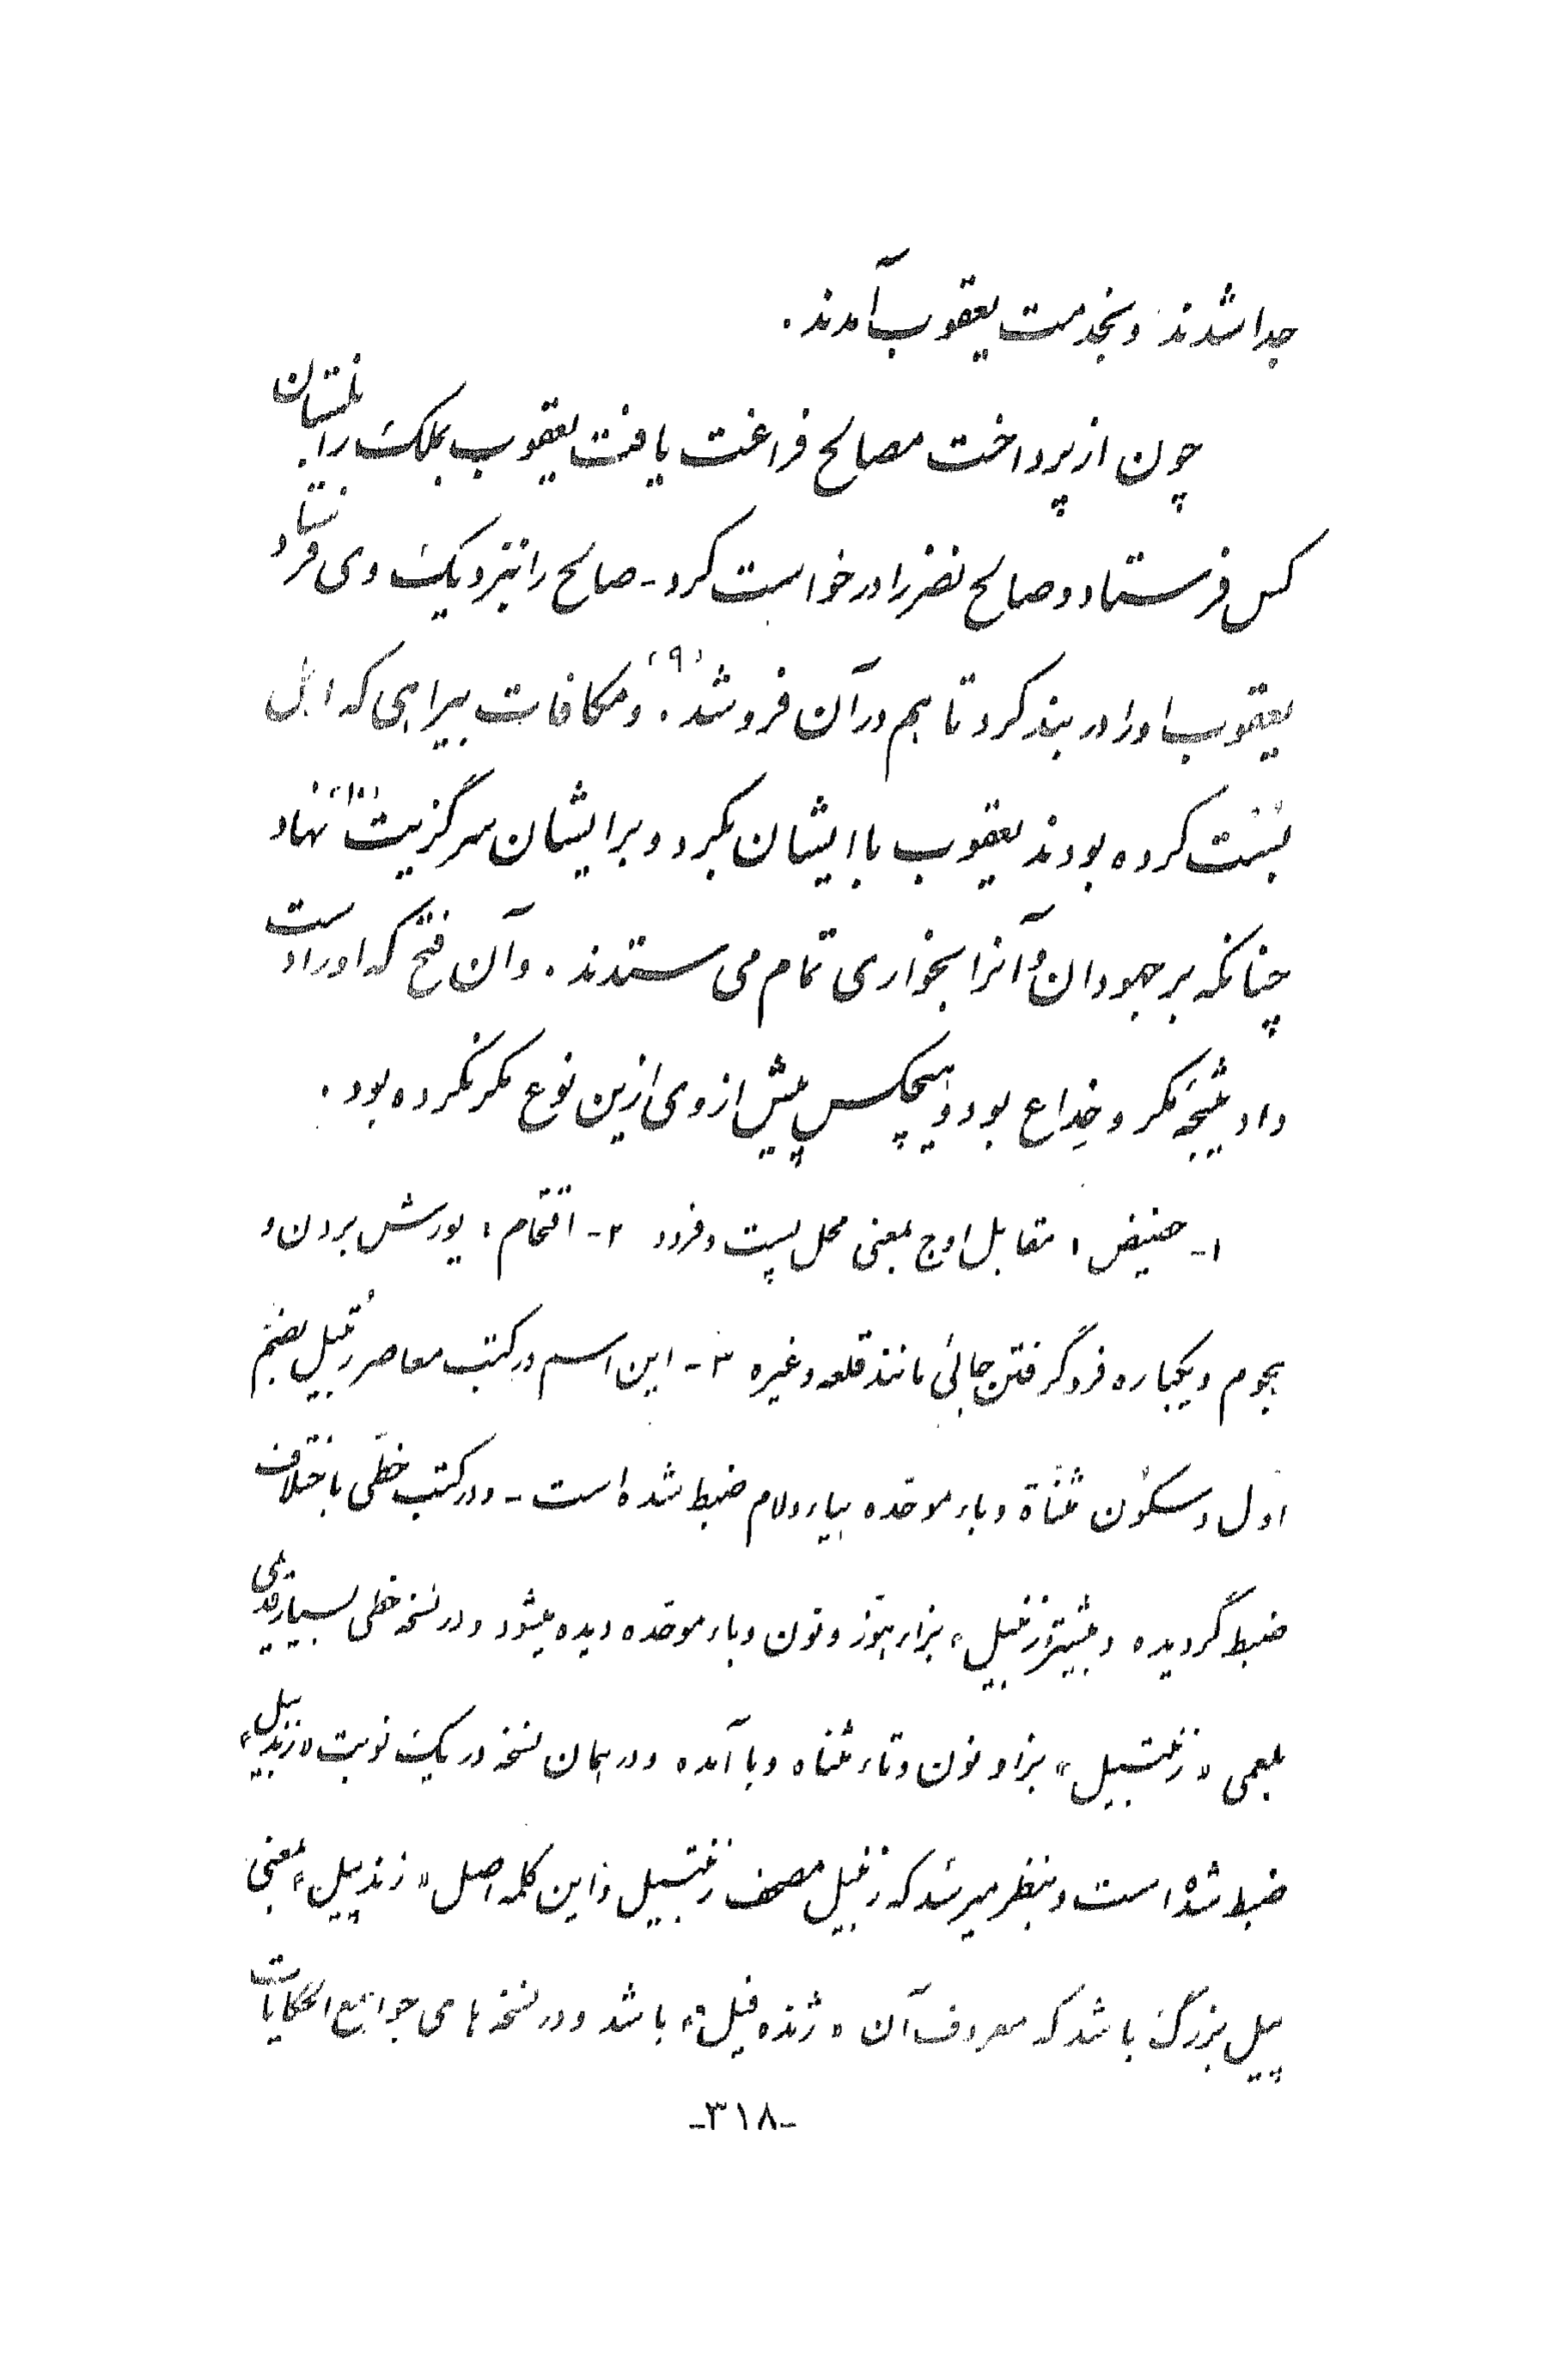 جدا شدند و بخدمت یعقوب آمدند.
چون از پرداخت مصالح فراغت یافت یعقوب بملک زابلستان
کس فرستاد و صالح نضر را درخواست کرد - صالح را بنزدیک وی فرستاد و
یعقوب او را در بند کرد تا هم در آن فروشد (۹). و مکافات بیراهی که اهل
بست کرده بودند یعقوب با ایشان بکرد و بر ایشان سرگزیت (۱۰) نهاد
چنانکه بر جهودان و آنرا بخواری تمام می ستدند. و آن فتح که او را دست
داد نتیجه مکر و خداع بود و هیچکس پیش از وی ازین نوع مکر نکرده بود.
۱- حضیض: مقابل اوج بمعنی محل پست و فرود ۲- اقتحام: یورش بردن و
هجوم و یکباره فروگرفتن جائی مانند قلعه و غیره ۳- این اسم در کتب معاصر رُتبیل بضمّ
اول و سکون مثناة و باء موحّده بیاء و لام ضبط شده است - و در کتب خطّی باختلاف
ضبط گردیده و بیشتر «زنبیل» بزاء هوّز و نون و باء موحّده دیده میشود و در نسخه خطی بسیار قدیمی
بلعمی «زنتبیل» بزا و نون و تاء مثناه و با آمده و در همان نسخه در یک نوبت «زندبیل»
ضبط شده است و بنظر میرسد که زنبیل مصحف زنتبیل و این کلمه اصل «زندپیل» بمعنی
پیل بزرگ باشد که معروف آن «ژنده فیل» باشد و در نسخه های جوامع الحکایات
-۳۱۸-